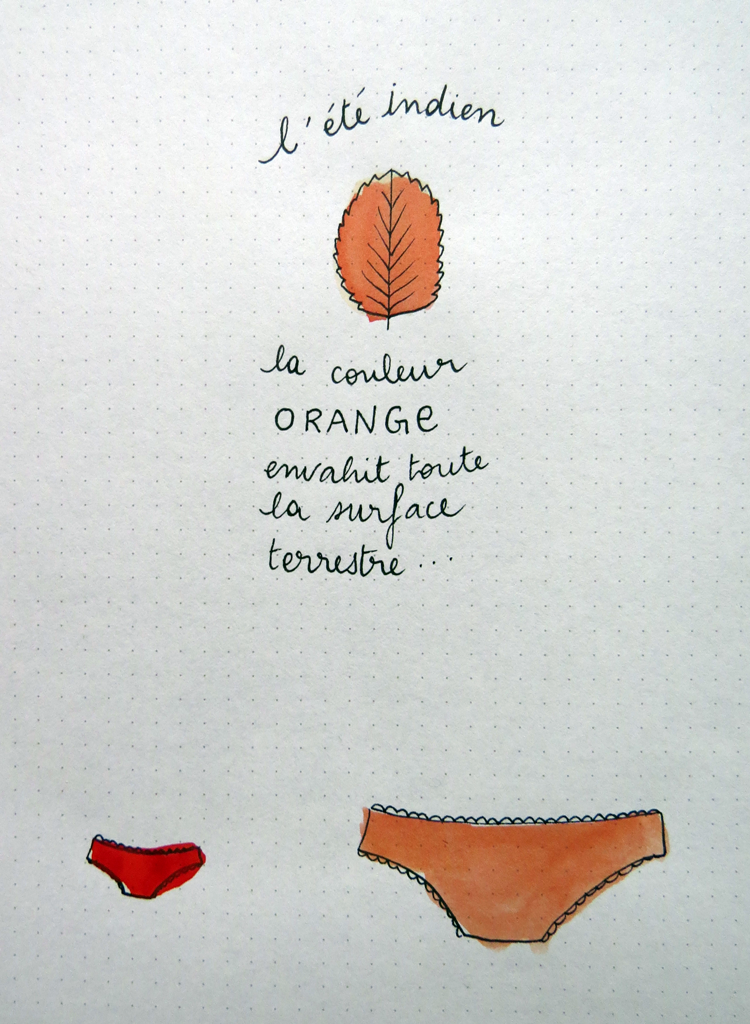 l'été indien
la couleur
ORANGE
envahit toute
la surface
terrestre...